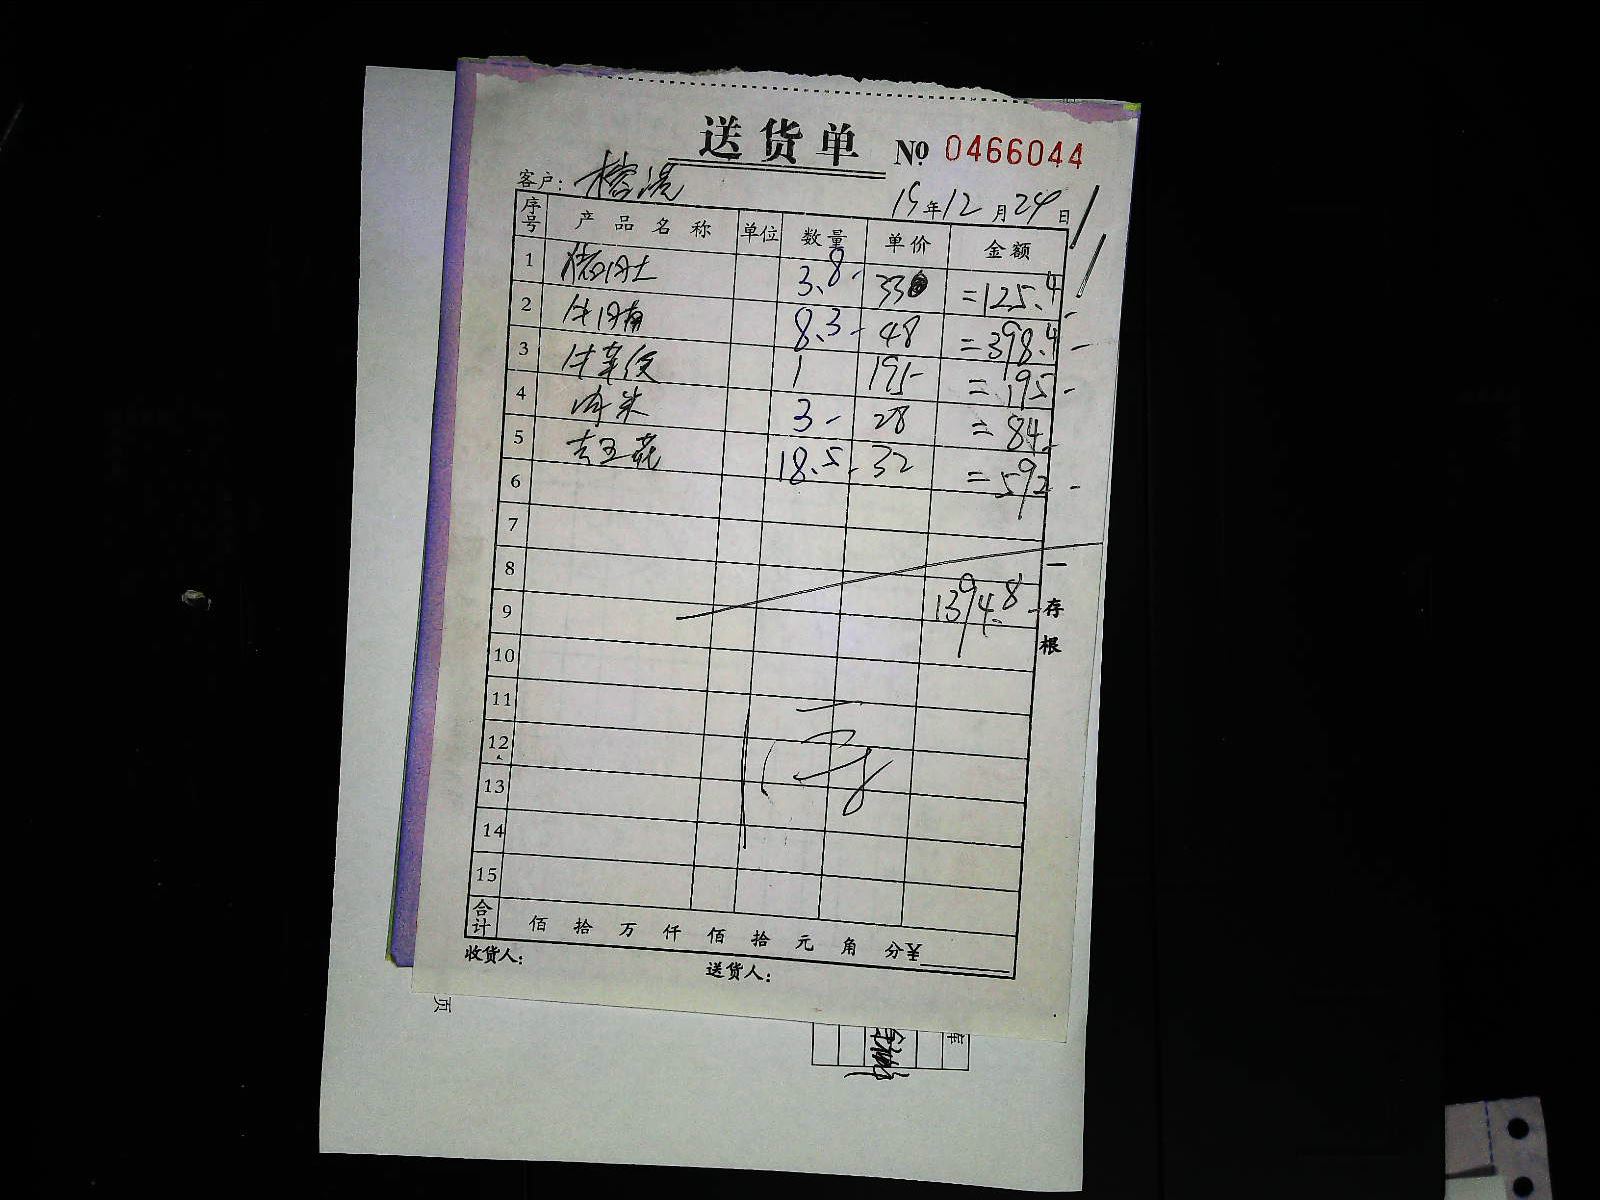 送货单 № 0466044
客户: 榕滉 15年12月24日
序号 产品名称 单位 数量 单价 金额
1 3.8- 33 =125.4-
2 牛肉 8.3- 48 =398.4-
3 牛 1 195- =195-
4 肉米 3- 28 =84.-
5 去五花 18.5- 32 =592-
6
7
8
9 1394.8-
10
11
12
13
14
15
合计 佰 拾 万 仟 佰 拾 元 角 分¥
收货人: 送货人:
一存根
页
库